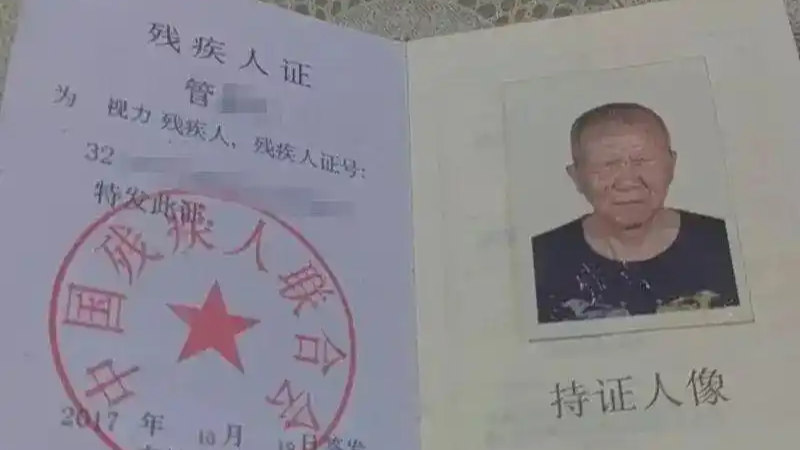 残疾人证
管
为 视力 残疾人，残疾人证号：
32
特发此证
中国残疾人联合会
2017 年 10月 日签发
持证人像